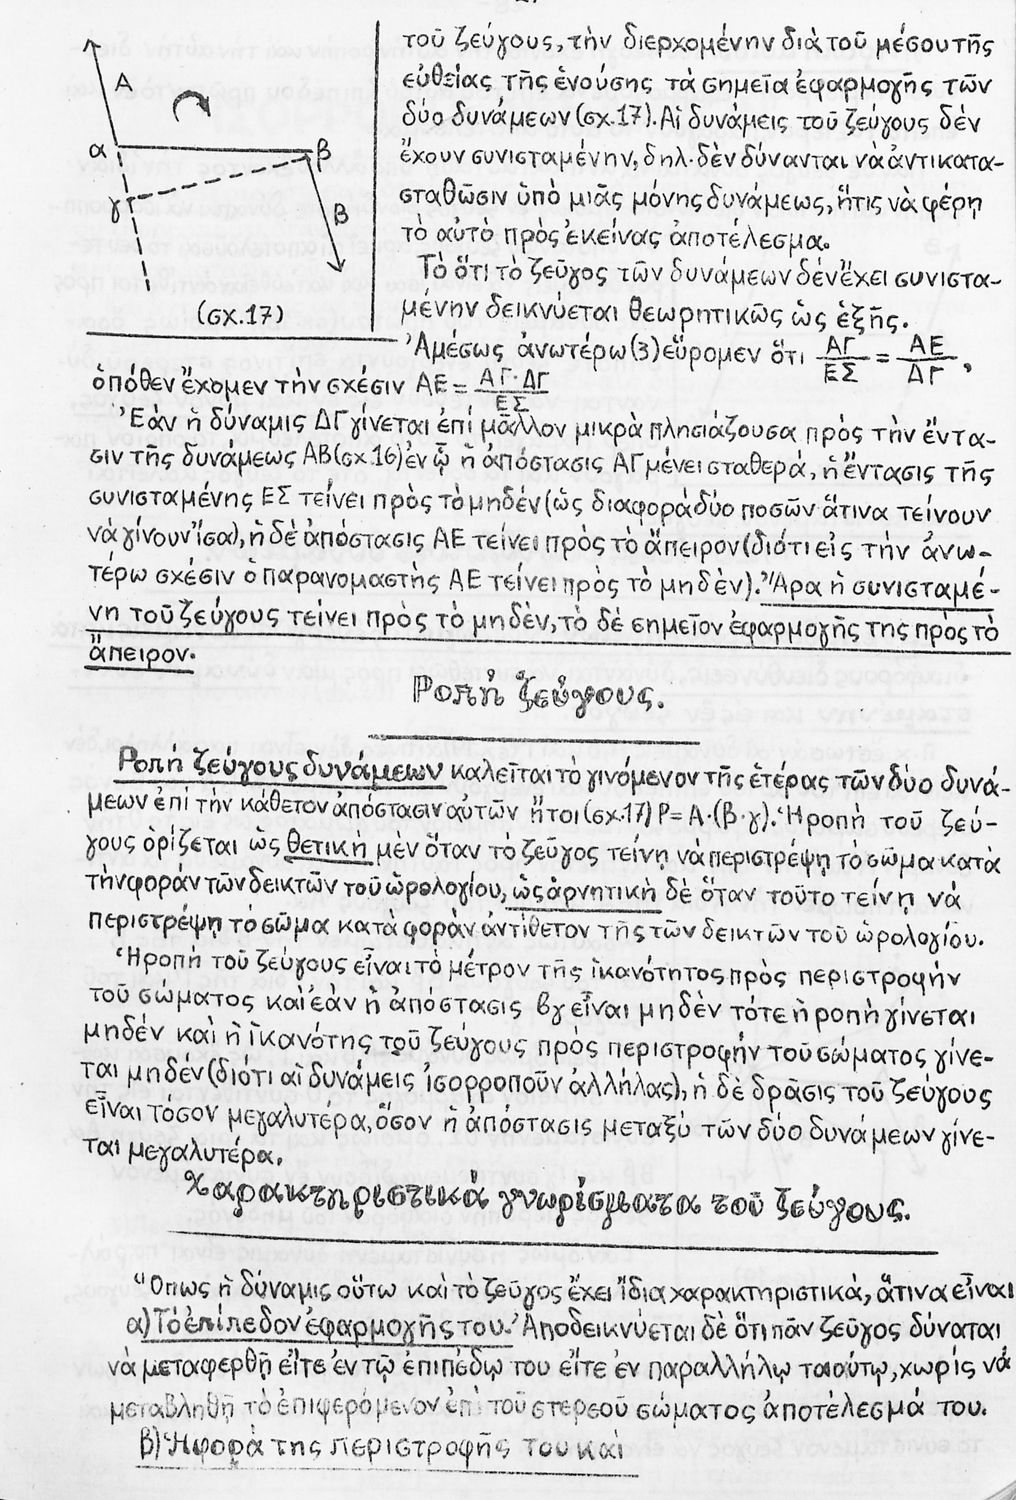 Α
α
β
γ
Β
(σχ.17)
τοῦ ζεύγους, τὴν διερχομένην διὰ τοῦ μέσου τῆς
εὐθείας τῆς ἑνούσης τὰ σημεῖα ἐφαρμογῆς τῶν
δύο δυνάμεων (σχ.17). Αἱ δυνάμεις τοῦ ζεύγους δὲν
ἔχουν συνισταμένην, δηλ. δὲν δύνανται νὰ ἀντικατα-
σταθῶσιν ὑπὸ μιᾶς μόνης δυνάμεως, ἥτις νὰ φέρῃ
τὸ αὐτὸ πρὸς ἐκείνας ἀποτέλεσμα.
Τὸ ὅτι τὸ ζεῦγος τῶν δυνάμεων δὲν ἔχει συνιστα-
μένην δεικνύεται θεωρητικῶς ὡς ἑξῆς.
Ἀμέσως ἀνωτέρω (3) εὕρομεν ὅτι ΑΓ/ΕΣ = ΑΕ/ΔΓ,
ὁπόθεν ἔχομεν τὴν σχέσιν ΑΕ = ΑΓ·ΔΓ/ΕΣ
Ἐὰν ἡ δύναμις ΔΓ γίνεται ἐπί μᾶλλον μικρὰ πλησιάζουσα πρὸς τὴν ἔντα-
σιν τῆς δυνάμεως ΑΒ (σχ.16) ἐν ᾧ ἡ ἀπόστασις ΑΓ μένει σταθερά, ἡ ἔντασις τῆς
συνισταμένης ΕΣ τείνει πρὸς τὸ μηδέν (ὡς διαφορὰ δύο ποσῶν ἅτινα τείνουν
νὰ γίνουν ἴσα), ἡ δὲ ἀπόστασις ΑΕ τείνει πρὸς τὸ ἄπειρον (διότι εἰς τὴν ἀνω-
τέρω σχέσιν ὁ παρανομαστὴς ΑΕ τείνει πρὸς τὸ μηδὲν). Ἄρα ἡ συνισταμέ-
νη τοῦ ζεύγους τείνει πρὸς τὸ μηδὲν, τὸ δὲ σημεῖον ἐφαρμογῆς της πρὸς τὸ
ἄπειρον.
Ροπὴ ζεύγους.
Ροπὴ ζεύγους δυνάμεων καλεῖται τὸ γινόμενον τῆς ἑτέρας τῶν δύο δυνά-
μεων ἐπὶ τὴν κάθετον ἀπόστασιν αὐτῶν ἤτοι (σχ.17) Ρ = Α·(β·γ). Ἡ ροπὴ τοῦ ζεύ-
γους ὁρίζεται ὡς θετικὴ μὲν ὅταν τὸ ζεῦγος τείνῃ νὰ περιστρέψῃ τὸ σῶμα κατὰ
τὴν φορὰν τῶν δεικτῶν τοῦ ὡρολογίου, ὡς ἀρνητικὴ δὲ ὅταν τοῦτο τείνῃ νὰ
περιστρέψῃ τὸ σῶμα κατὰ φορὰν ἀντίθετον τῆς τῶν δεικτῶν τοῦ ὡρολογίου.
Ἡ ροπὴ τοῦ ζεύγους εἶναι τὸ μέτρον τῆς ἱκανότητος πρὸς περιστροφὴν
τοῦ σώματος καὶ ἐὰν ἡ ἀπόστασις βγ εἶναι μηδὲν τότε ἡ ροπὴ γίνεται
μηδὲν καὶ ἡ ἱκανότης τοῦ ζεύγους πρὸς περιστροφὴν τοῦ σώματος γίνε-
ται μηδὲν (διότι αἱ δυνάμεις ἰσορροποῦν ἀλλήλας), ἡ δὲ δρᾶσις τοῦ ζεύγους
εἶναι τόσον μεγαλυτέρα, ὅσον ἡ ἀπόστασις μεταξὺ τῶν δύο δυνάμεων γίνε-
ται μεγαλυτέρα.
Χαρακτηριστικὰ γνωρίσματα τοῦ ζεύγους.
Ὅπως ἡ δύναμις οὕτω καὶ τὸ ζεῦγος ἔχει ἴδια χαρακτηριστικά, ἅτινα εἶναι
α) Τὸ ἐπίπεδον ἐφαρμογῆς του. Ἀποδεικνύεται δὲ ὅτι πᾶν ζεῦγος δύναται
νὰ μεταφερθῇ εἴτε ἐν τῷ ἐπιπέδῳ του εἴτε ἐν παραλλήλῳ τοιούτῳ, χωρίς νὰ
μεταβληθῇ τὸ ἐπιφερόμενον ἐπὶ τοῦ στερεοῦ σώματος ἀποτέλεσμά του.
β) Ἡ φορὰ της περιστροφῆς του καὶ